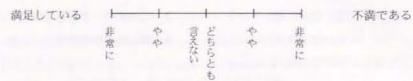 満足している 不満である
非常に
やや
どちらとも
言えない
やや
非常に